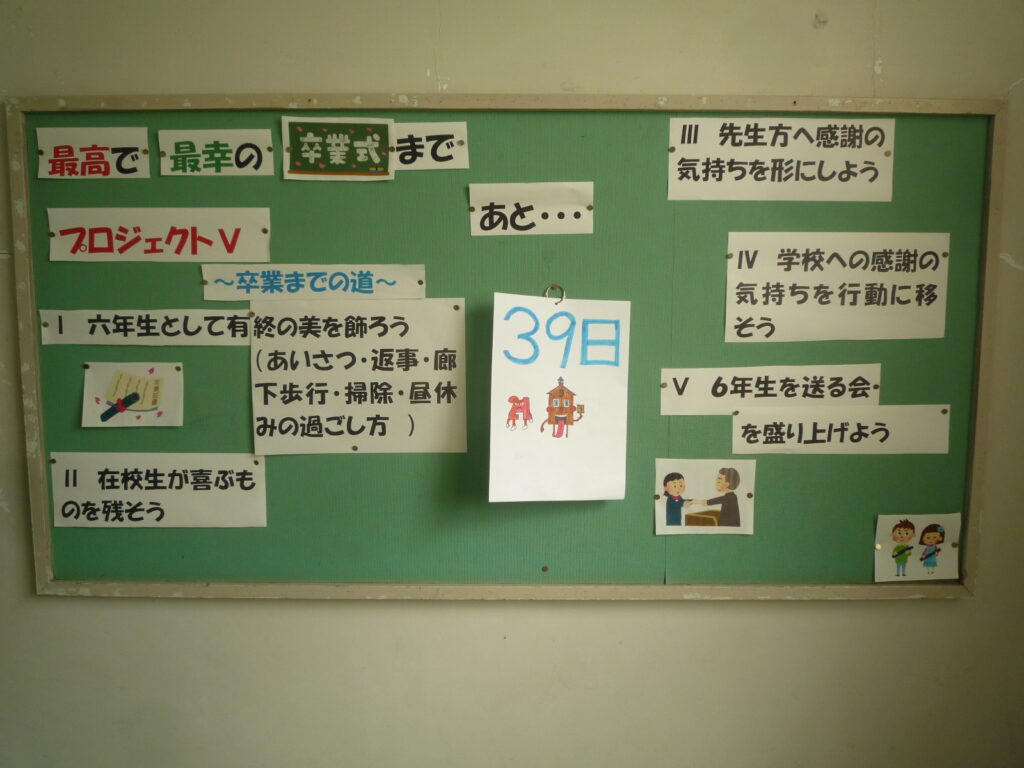 最高で 最幸の 卒業式 まで
あと・・・
39日
プロジェクトⅤ
～卒業までの道～
Ⅰ 六年生として有終の美を飾ろう
（あいさつ・返事・廊
下歩行・掃除・昼休
みの過ごし方 ）
Ⅱ 在校生が喜ぶも
のを残そう
Ⅲ 先生方へ感謝の
気持ちを形にしよう
Ⅳ 学校への感謝の
気持ちを行動に移
そう
Ⅴ 6年生を送る会
を盛り上げよう